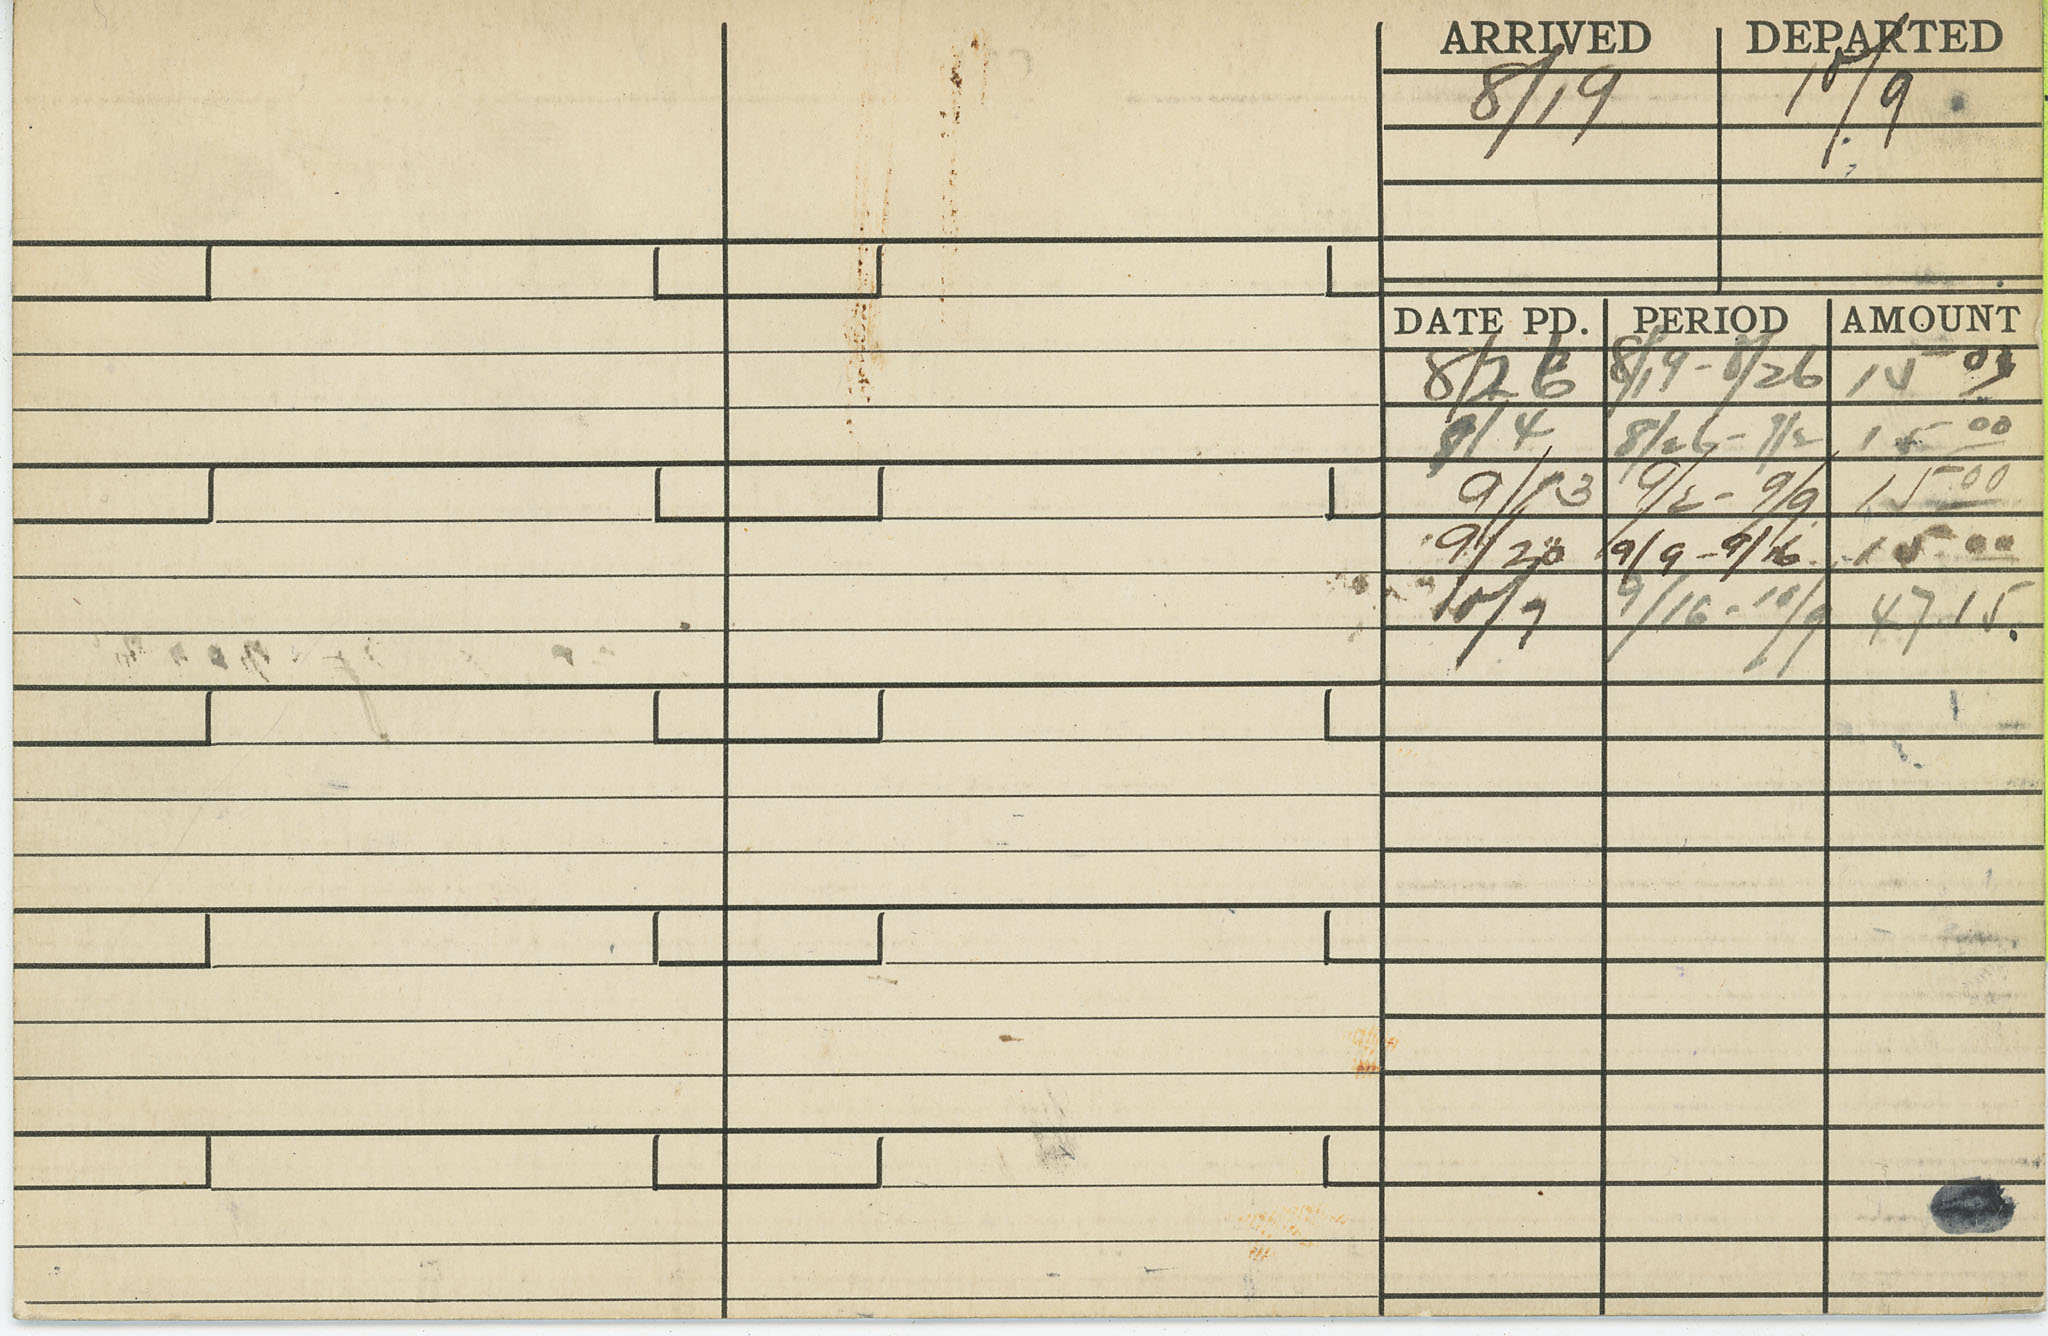 ARRIVED DEPARTED
8/19 10/9
DATE PD. PERIOD AMOUNT
8/26 8/19 - 8/26 15 00
9/4 8/26 - 9/2 15 00
9/13 9/2 - 9/9 15 00
9/20 9/9 - 9/16 15 00
10/9 9/16 - 10/9 47.15